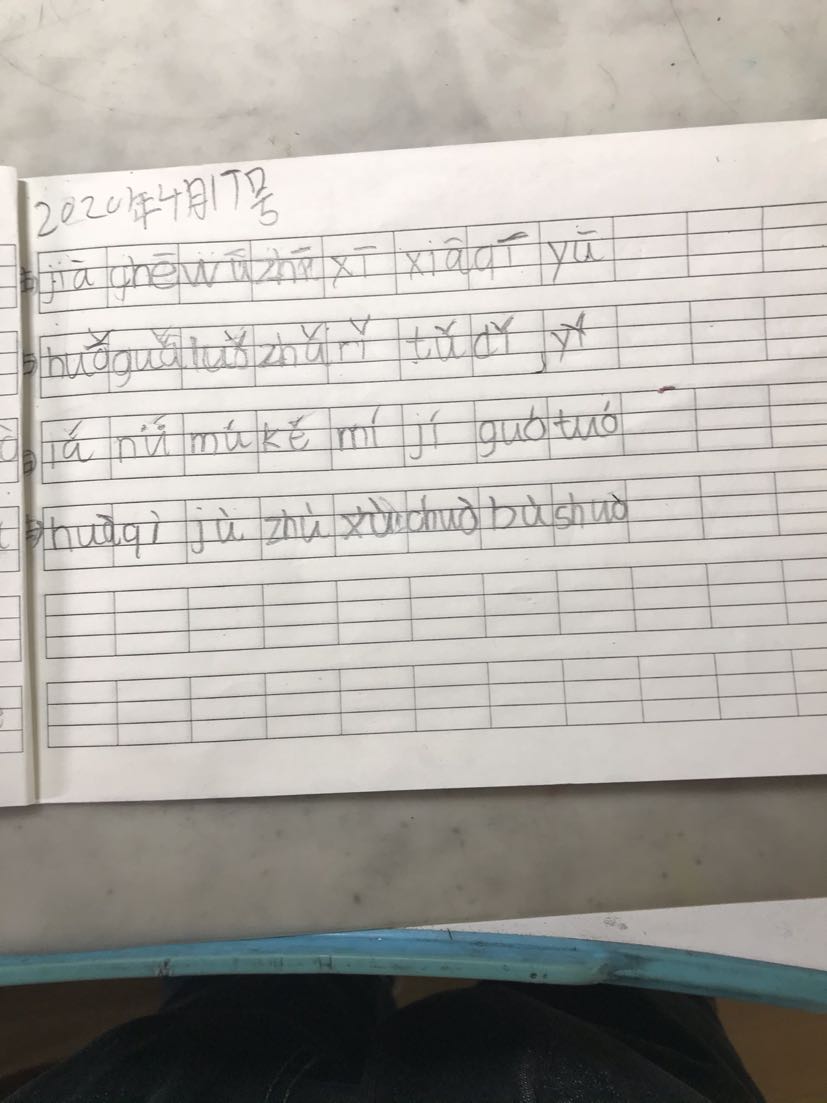 2020年4月17号
jiā ghē wū zhū xī xiā qī yū
huǒ guǎ luǒ zhǔ rǐ tǔ dǐ yǐ
iǎ nǚ mú kě mí jí guó tuó
huò qì jù zhù xù chuò bù shuò